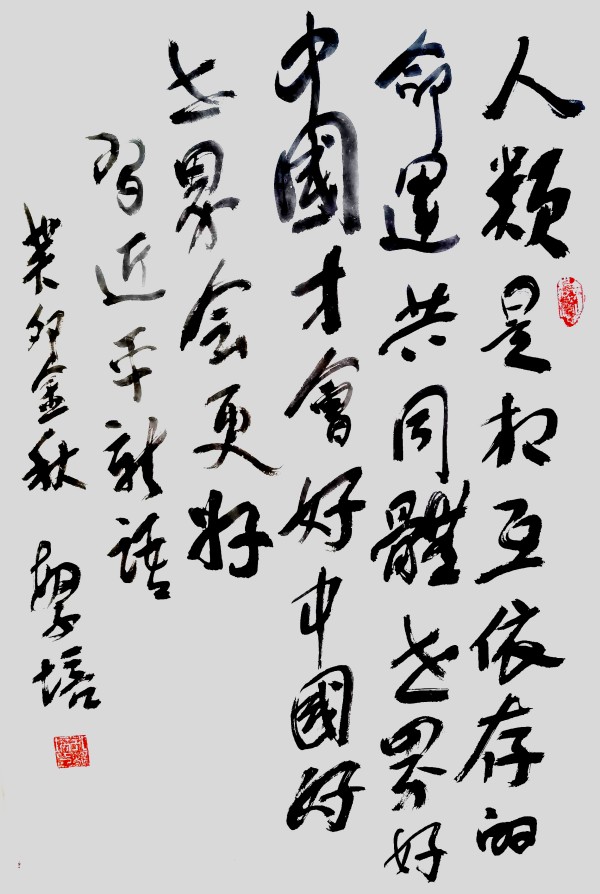 人類是相互依存的
命運共同體世界好
中國才會好中國好
世界会更好
習近平新語
癸卯金秋
培